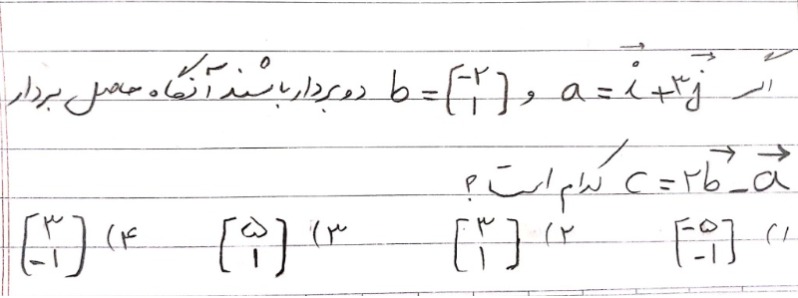 اگر a = i + ۳j و b = [-۲ ۱] دو بردار باشند آنگاه حاصل بردار
c = ۲b - a کدام است ؟
۱) [-۵ -۱] ۲) [۳ ۱] ۳) [۵ ۱] ۴) [۳ -۱]